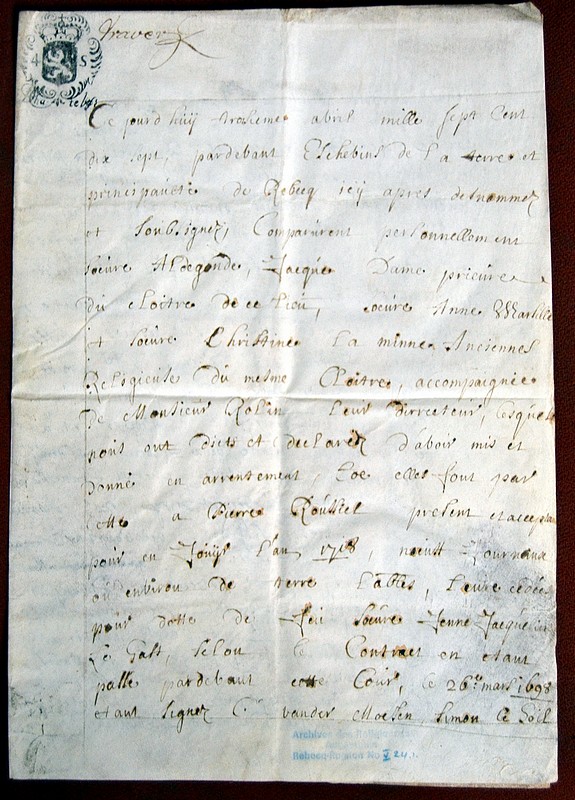 4 S
Ce jourd huÿ troisieme abril mille sept Cent
dix sept, pardebant Eschebins de la terre et
principaucte de Rebecq icÿ apres denommez
et soubsignez, Comparurent personnellement
soeure Aldegonde, Jacque Dame prieure
du cloitre de ce lieu, soeure Anne
et soeure Christine La minne Anciennes
Religieuse du mesme Cloitre, accompaignée
De Monsieur Rolin leur dirrecteur, lesquels
nous ont dicts et declarez d'aboir mis et
donné en arrentement, Coe elles font par
cette a Pierre Roussiel present et accep
pour en Jouÿr l'an 1718, noeuff Journaux
ou environ de terre lables, leure cedée
pour dotte de feu soeure Jenne Jacqueline
Le Gast, selon le Contract en etant
passé pardebant cette Cour, le 26e mars 1698
etant signez C. vander Moesen, Simon le
Archives des Religieuses
Rebecq-Rognon No V 24.1.